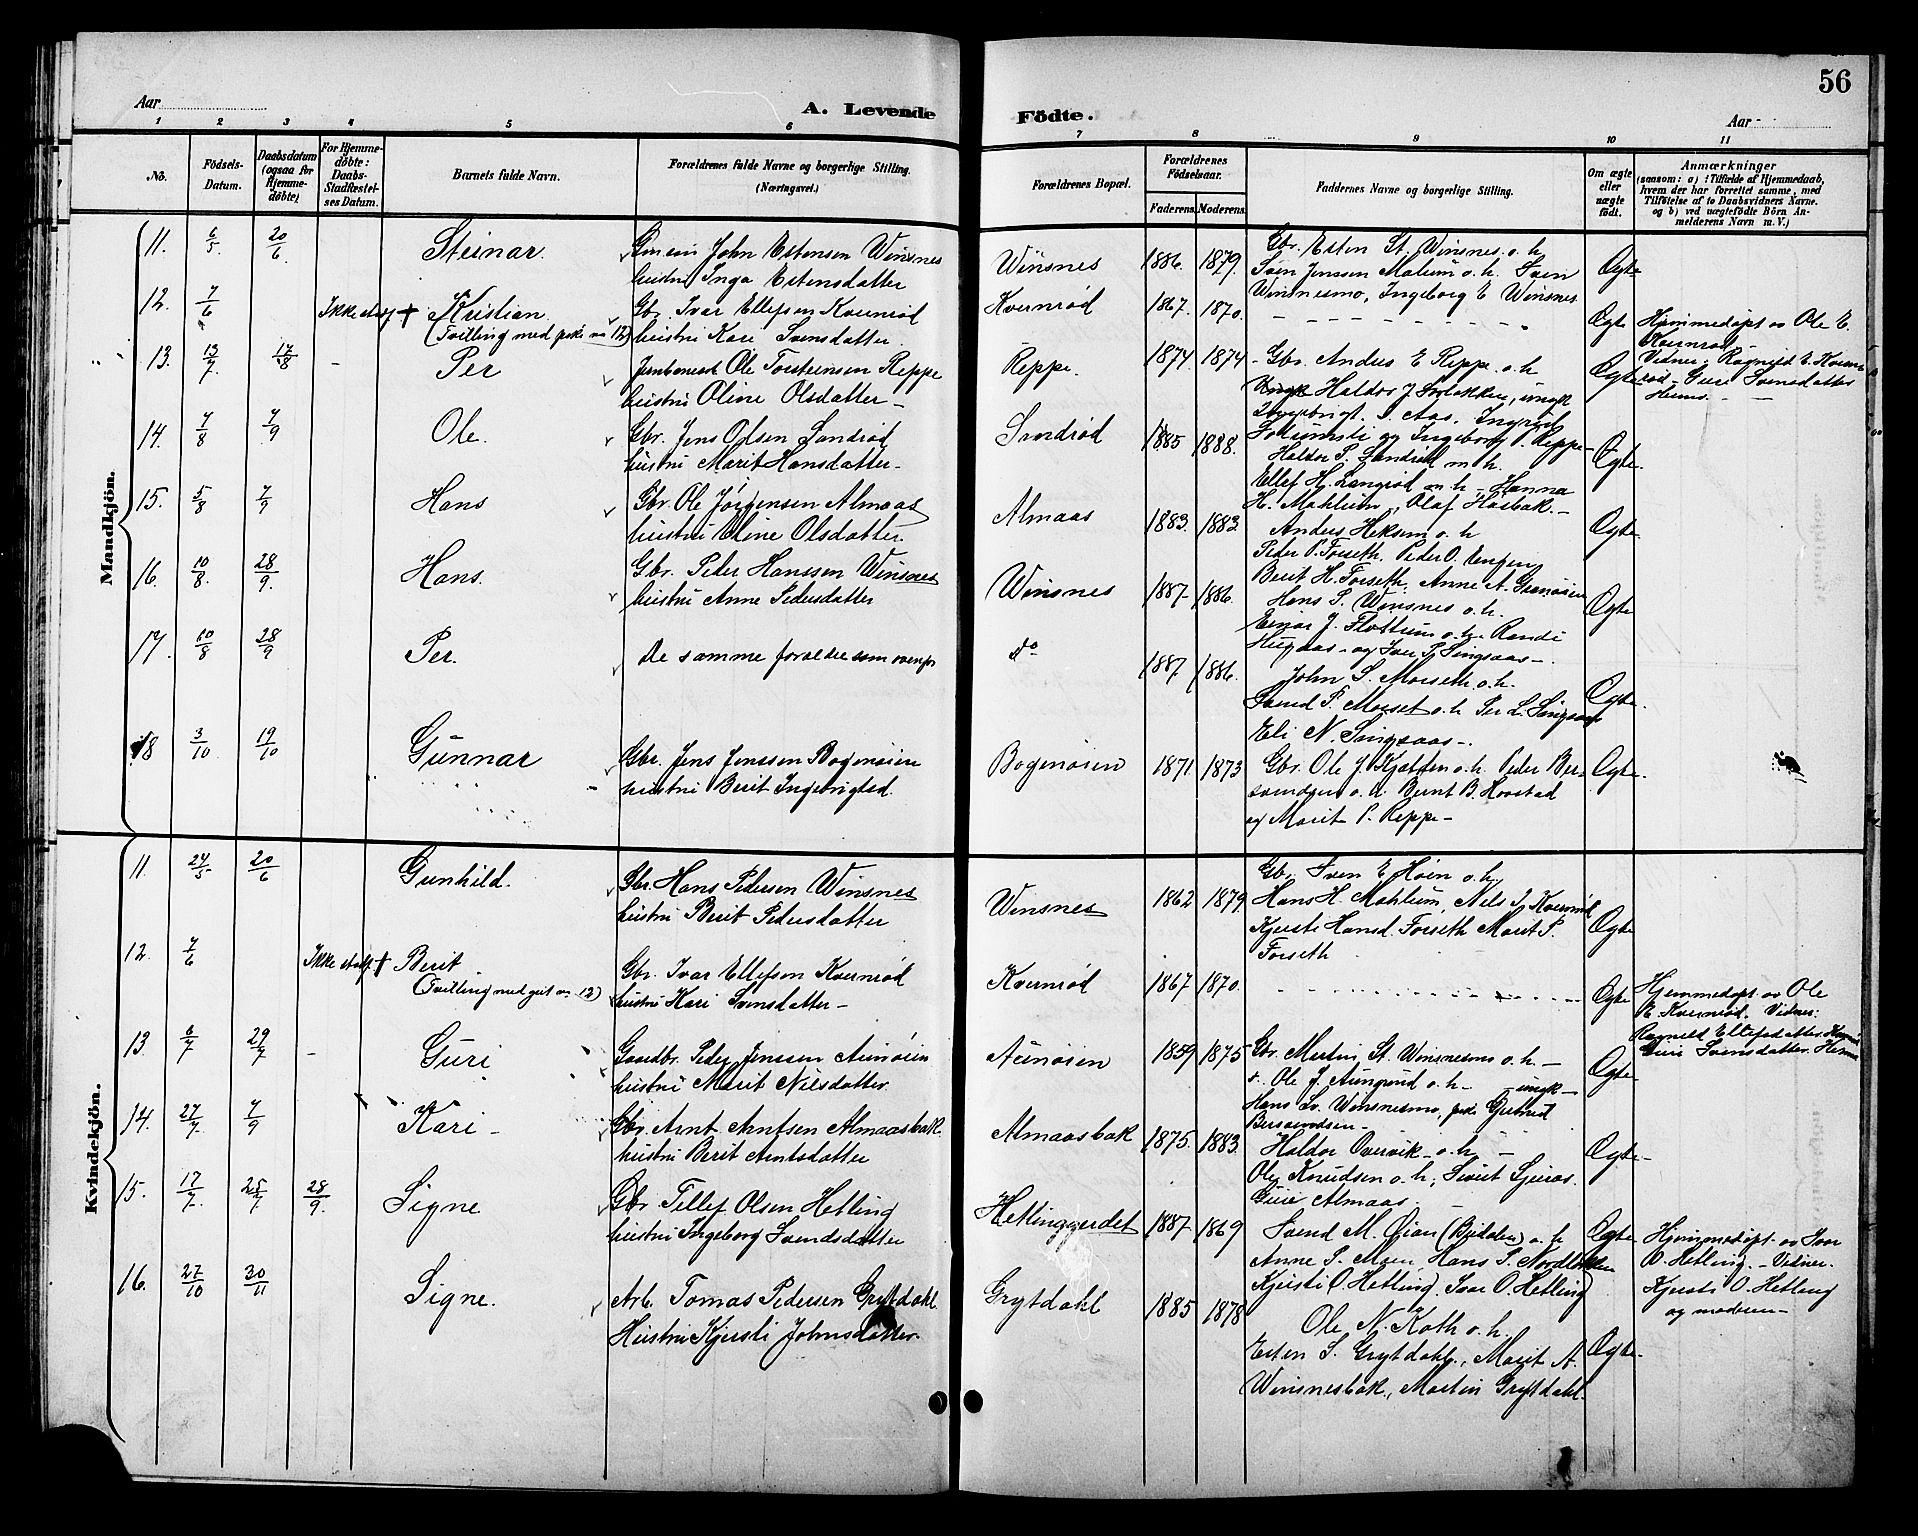 56
Aar
A. Levende
Födte.
Aar
1 2 3 4 5 6 7 8 9 10 11
No.
Födsels-Datum.
Daabsdatum (ogsaa for Hjemme-döbte)
For Hjemme-döbte: Daabs-Stadfæstel-ses Datum.
Barnets fulde Navn.
Forældrenes fulde Navne og borgerlige Stilling.
(Næringsvei.)
Forældrenes Bopæl.
Forældrenes Födselsaar.
Faderens.
Moderens.
Faddernes Navne og borgerlige Stilling.
Om ægte eller uægte födt.
Anmærkninger
(saasom: a) i Tilfælde af Hjemmedaab,
hvem der har forrettet samme, med
Tilföielse af to Daabsvidners Navne.
og b) ved uægtefödte Börn An-
melderens Navn m. V.)
Mandkjön.
11. 6/5. 20/6 Steinar. John Estensen Winsnes
hustru Inga Estensdatter
Winsnes 1886. 1879. Gbr. Esten St. Winsnes o. h.
Sven Jenssen Malum o. h. Sven
Winsnesmo, Ingeborg E. Winsnes
Ægte
12. 7/6 Ikke stadf. + Kristian.
(Tvilling med pike no 12)
Gbr. Ivar Ellefsen Kvernrød
hustru Kari Svensdatter.
Kvernrød 1867. 1870. Ægte
Hjemmedøpt av Ole E.
Kvernrød.
Vidner: Ragnild E. Kvern-
rød - Guri Svensdatter
13. 13/7. 17/8 - Per
Ole Torstensen Reppe
hustru Oline Olsdatter -
Reppe. 1874 1874 - Gbr. Anders E Reppe o. h
Haldor J. ungk
Ingebrigt Aas, Ingrid
og Ingeborg P. Reppe -
Ægte
14. 7/8 7/9 Ole.
Gbr. Jens Olsen Sandrød
hustru Marit Hansdatter -
Sandrød 1885 1888. Haldor P. Sandrød m. h.
Ellef H. Langrød m h - Hanna
H. Mahlum, Olaf Hosbak. -
Ægte
15. 5/8 7/9 Hans
Gbr. Ole Jørgensen Almaas
hustru Eline Olsdatter.
Almaas 1883. 1883. Anders Heksem o. h
Peder P. Forseth. Peder O. Engen
Berit H. Forseth. Anne A. Granøien
Ægte
16. 10/8. 28/9. Hans.
Gbr. Peder Hanssen Winsnes
hustru Anne Pedersdatter
Winsnes 1887 1886. Hans P. Winsnes o. h.
Einar J. Flottum o. h. Randi
Hugaas - og Iver P. Singsaas -
Ægte
17. 10/8 28/9 Per.
De samme foreldre som ovenfr
do 1887 1886. John S. Morseth o. h.
Svend P. Morset o. h Per L. Singsaas
Eli N. Singsaas -.
Ægte.
18 3/10 19/10 Gunnar
Gbr. Jens Jenssen Bogenøien
hustru Berit Ingebrigtsd.
Bogenøien 1871 1873 Gbr. Ole J. Kjøtten o. h. Peder Ber-
svendsen o. h Bernt B. Hovstad
og Marit P. Reppe -
Ægte -
Kvindekjön.
11. 24/5 20/6 Gunhild.
Gbr. Hans Pedersen Winsnes
hustru Berit Pedersdatter
Winsnes 1862 1879. Gbr Sven E Høien o. h.
Hans H. Mahlum, Nels I. Kvernrød
Kjersti Hansd. Forseth Marit P.
Forseth
Ægte
12. 7/6 Ikke stadf. + Berit
(Tvilling med gut no 12)
Gbr. Ivar Ellefsen Kvernrød
hustru Kari Svensdatter -
Kvernrød 1867 1870. Ægte
Hjemmedøpt av Ole
E. Kvernrød. Vidner:
Ragnild Ellefsdatter
Guri Svensdatter.
13. 6/7 29/7 - Guri
Gaardbr. Peder Jenssen Aunøien
hustru Marit Nilsdatter
Aunøien 1859 1875 Gbr. Martin St. Winsnesmo o. h. -
Ole J. Aungrind o. h - ungk -
Hans Sv. Winsnesmo, pike Gjertrud
Bersvendsen -
Ægte
14. 27/7. 7/9 Kari -
Gbr. Arnt Arntsen Almaasbak
hustru Berit Arntsdatter
Almaasbak 1875. 1883. Haldor Overvik - o. h. -
Ole Knudsen o. h, Sivert
Guri Almaas -
Ægte -
15. 17/7 25/7 28/9. Signe
Gbr Tellef Olsen Hetling
hustru Ingeborg Svendsdatter
Hetlinggjerdet 1887 1869 Svend M. (Budalen) o. h
Anne P. Moen, Hans P.
Kjersti O. Hetling, Ivar O. Hetling
Ægte
Hjemmedøpt av Ivar
O. Hetling. - Vidner.
Kjersti O. Hetling
og moderen -
16. 27/10 30/11 Signe.
Arb. Tomas Pedersen Grytdahl
Hustru Kjersti Johnsdatter.
Grytdahl 1885 1878 Ole N. Koth o. h.
Esten S. Grytdahl, Marit A.
Winsnesbak, Martin Grytdahl.
Ægte